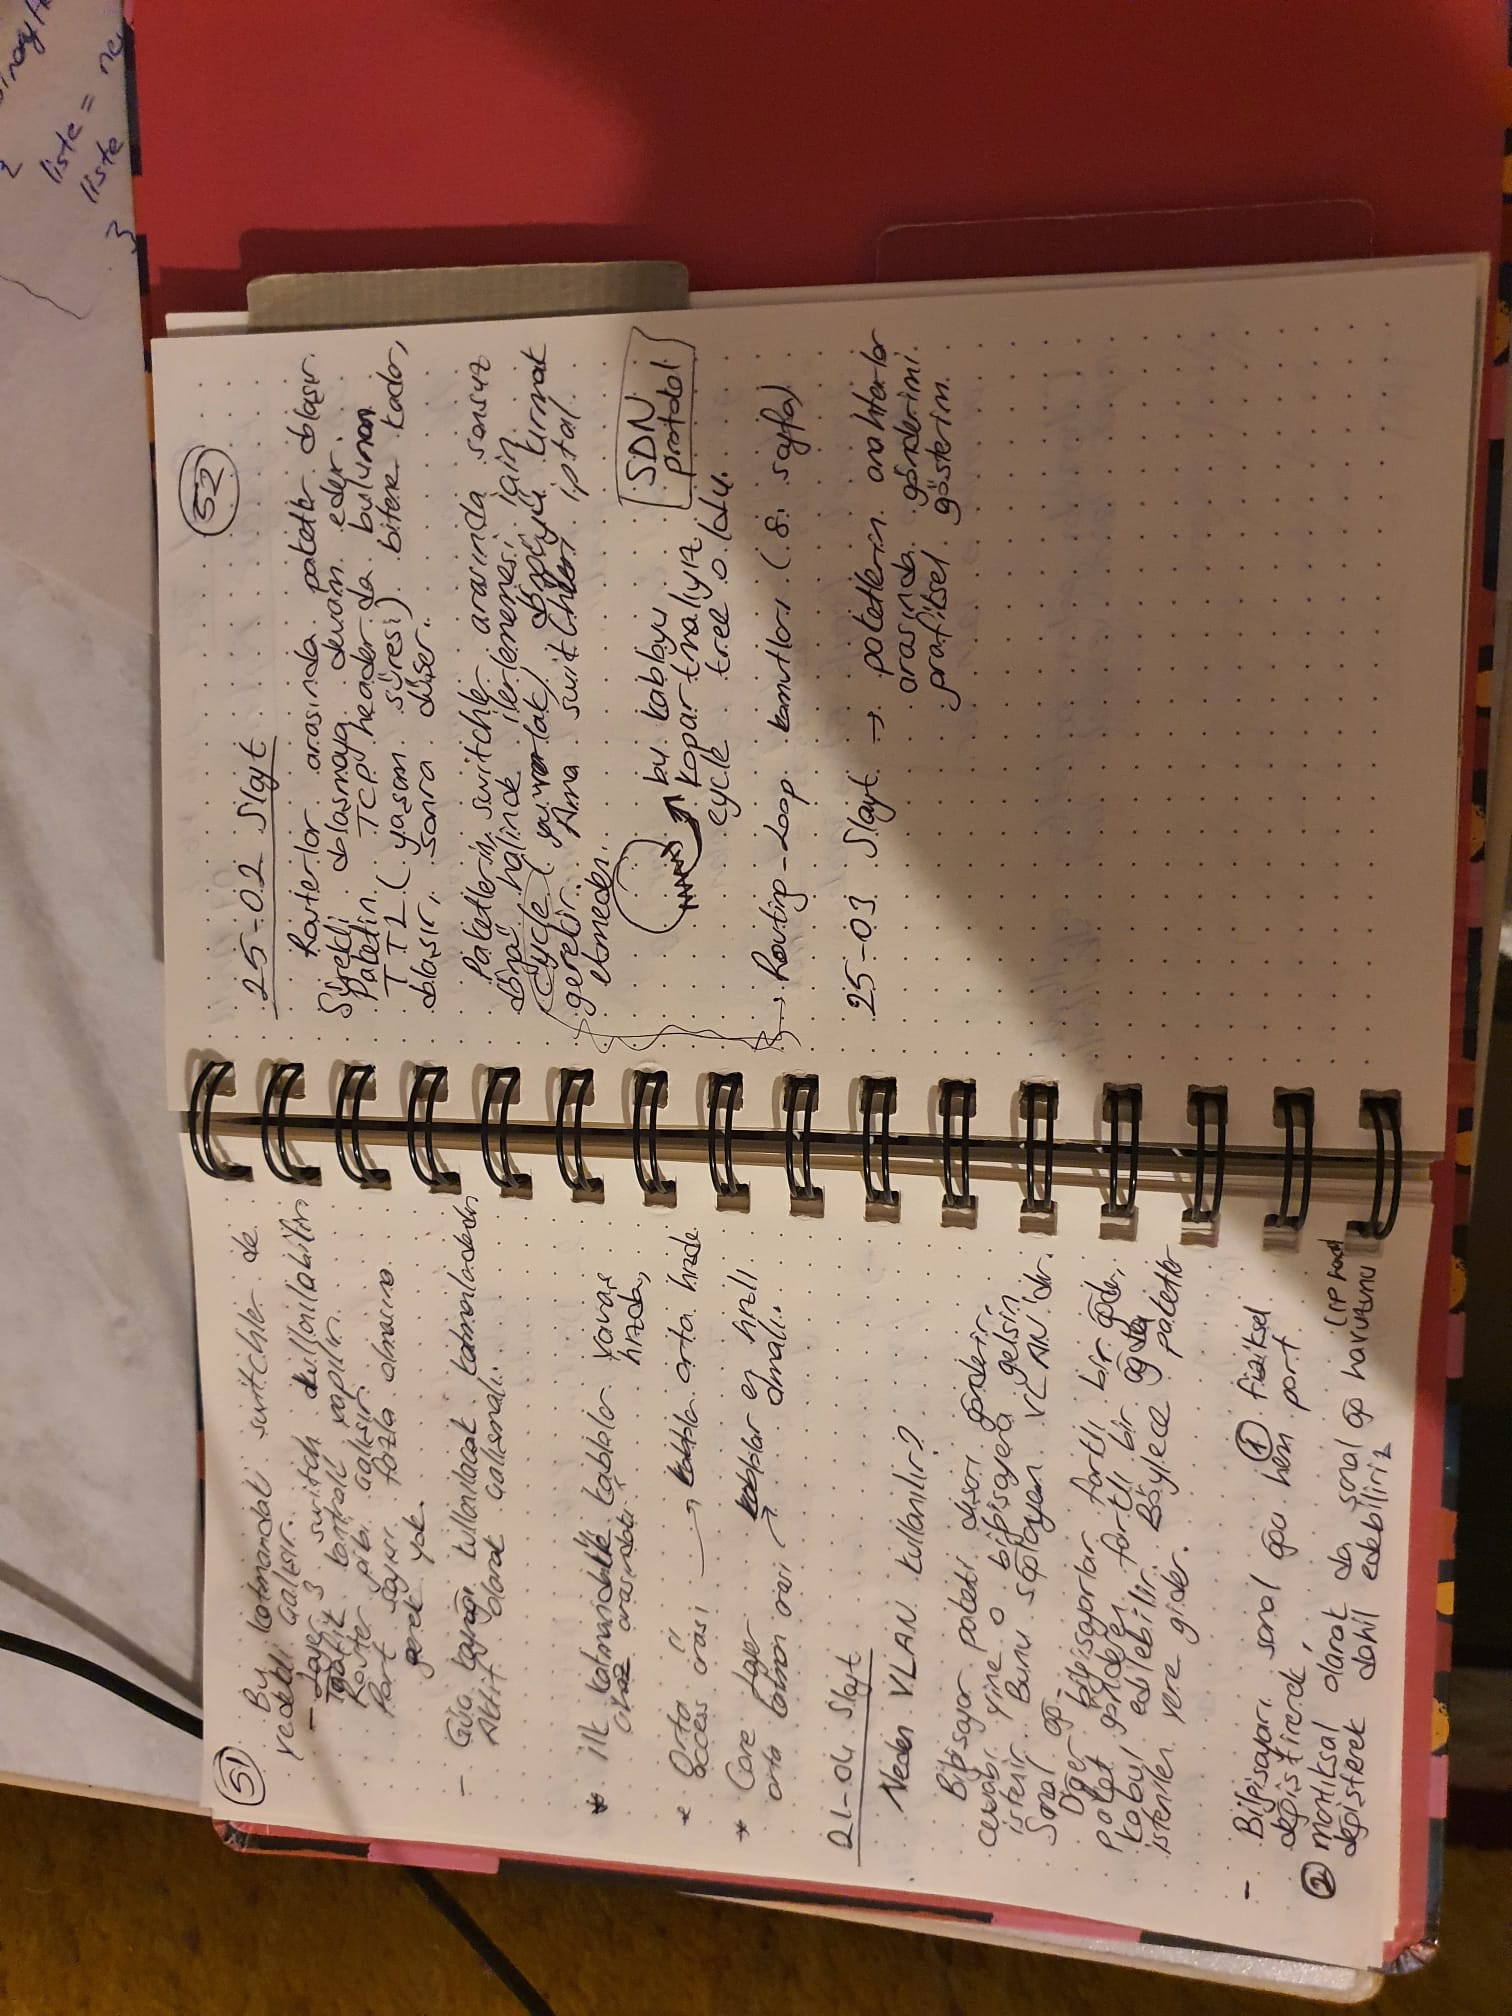 51
Bu katmandaki switchler de
yedekli çalışır.
- Layer 3 switch kullanılabilir.
Trafik kontrolü yapılır.
Router gibi çalışır.
Port sayısı fazla olmasına
gerek yok.
- Güç kaynağı kullanılacak katmanlardadır
Aktif olarak çalışmalı.
* ilk katmandaki kablolar yavaş
cihaz arasındaki hızda,
* Orta "
access arası → kablolar orta hızda
* Core Layer kablolar en hızlı
orta katman arası → olmalı.
21-04 Slayt
Neden VLAN kullanılır?
Bilgisayar paketi dışarı gönderir,
cevabı yine o bilgisayara gelsin
istenir. Bunu sağlayan VLAN'dır.
Sanal ağ-
Diğer bilgisayarlar farklı bir ağda,
paket gönderen farklı bir ağda
kabul edilebilir. Böylece paketler
istenilen yere gider.
- Bilgisayarı sanal ağa hem ① fiziksel
port
değiştirerek,
② mantıksal olarak da sanal ağ havuzunu
değişterek dahil edebiliriz
52
25-02 Slayt
Routerlar arasında paketler dolaşır.
Sürekli dolaşmaya devam eder.
Paketin TCP header da bulunan
TTL (yaşam süresi) bitene kadar,
dolaşır, sonra düşer.
Paketlerin switchler arasında sonsuz
döngü halinde ilerlememesi için
cycle (yuvarlak) döngüyü kırmak
gerekir. Ama switchleri iptal
etmeden.
bu kabloyu
kopartmalıyız
cycle tree oldu.
SDN
protokol
→ Routing-Loop komutları (8. sayfa)
25-03 Slayt → paketlerin anahtarlar
arasında gönderimi
grafiksel gösterim.
2
liste =
liste
3